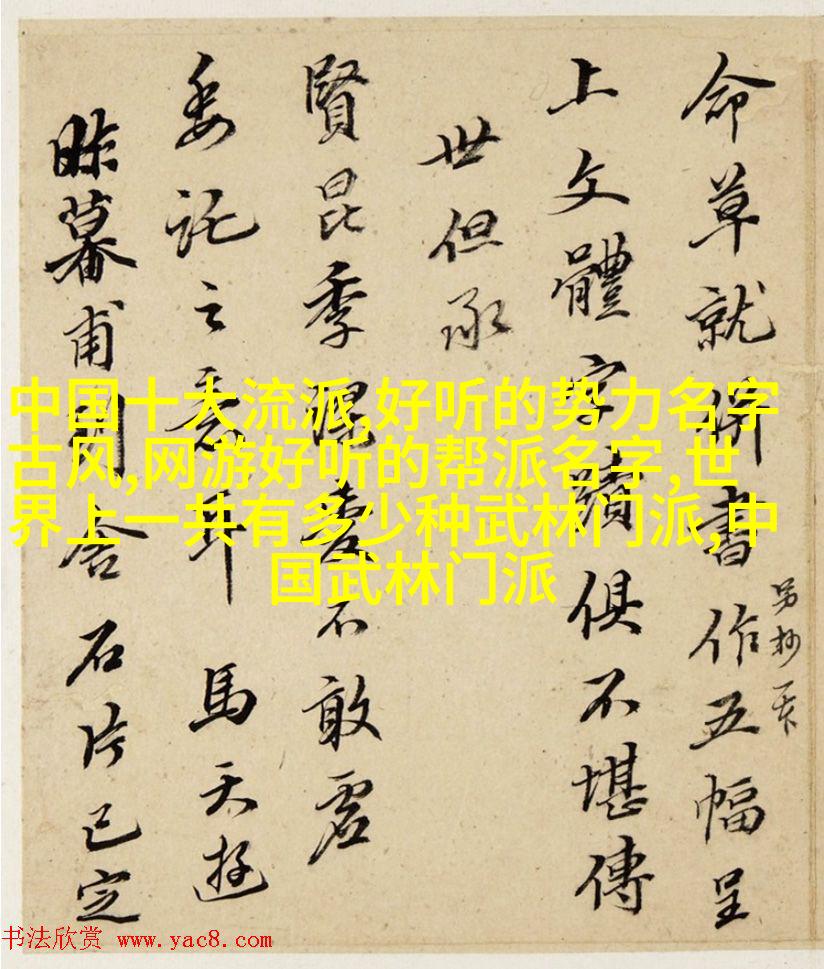 命草就併書作五幅呈
另抄一
上文體字蹟俱不堪傳
世但承
賢昆季渥愛不敢虛
委託之意耳 馬天游
昨暮甫 石片已定
中国十大流派,好听的势力名字
古风,网游好听的帮派名字,世
界上一共有多少种武林门派,中
国武林门派
书法欣赏 www.yac8.com